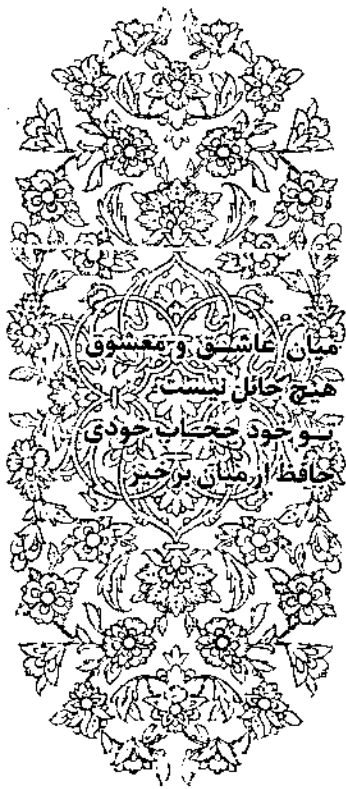 میان عاشق و معشوق
هیچ حائل نیست
تو خود حجاب خودی
حافظ از میان برخیز